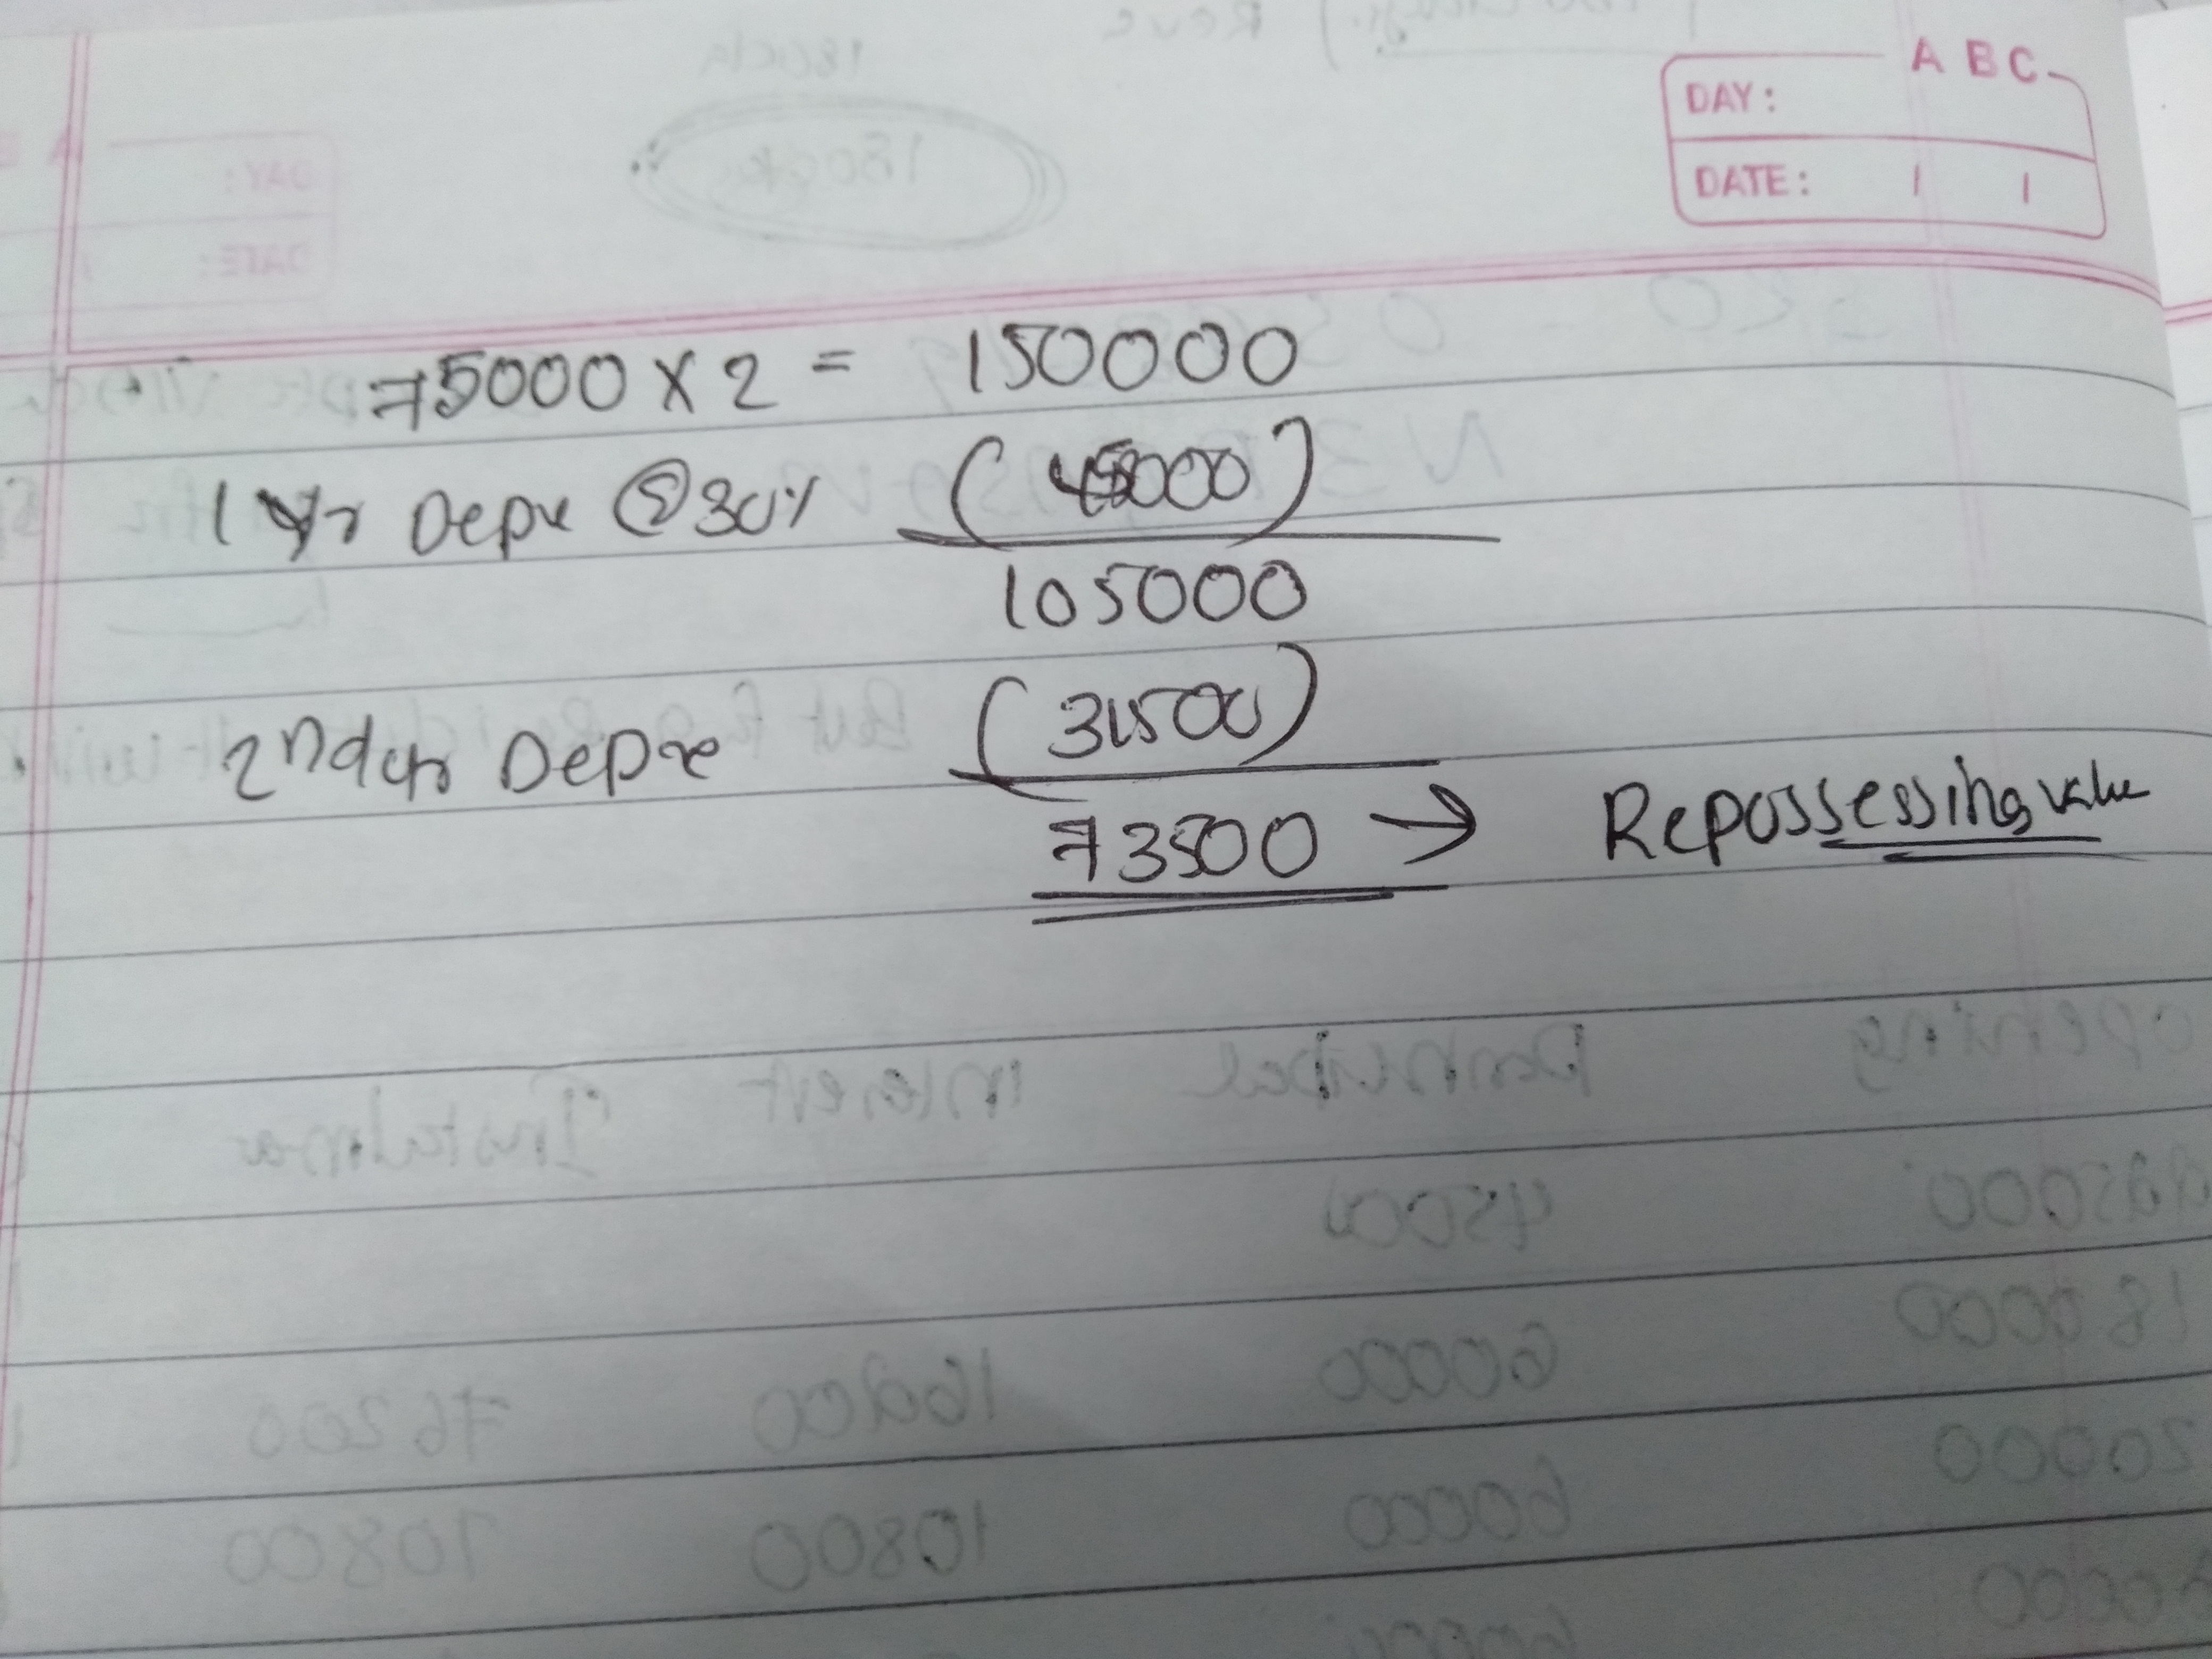 A B C
DAY:
DATE: / /
75000 X 2 = 150000
1 Yr Depre @30% (45000)
105000
2nd yr Depre (31500)
73500 → Repossessing value